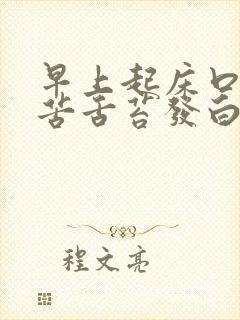 早上起床口
苦舌苔發白
程文亮